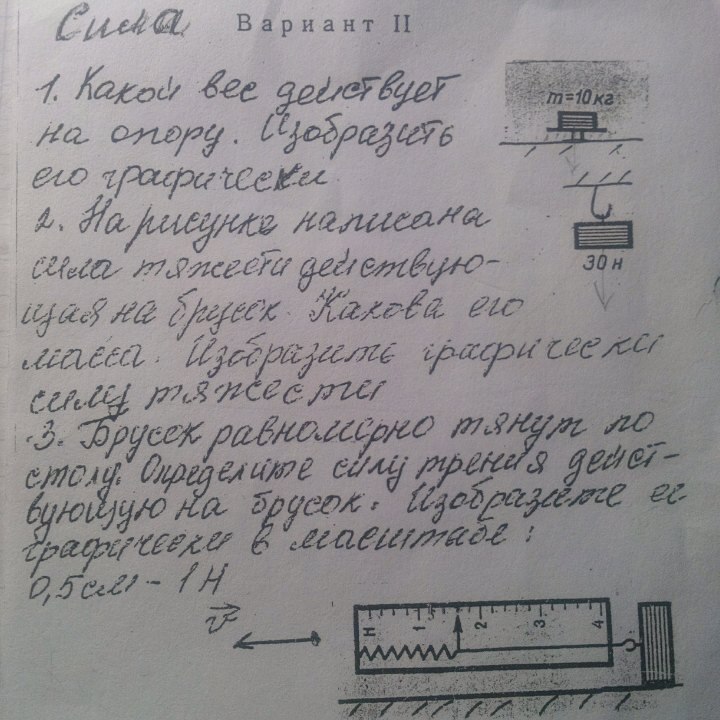 Сила Вариант II
1. Какой вес действует
на опору. Изобразить
его графически
m=10кг
2. На рисунке написана
сила тяжести действую-
30н
щая на брусок. Какова его
масса. Изобразить графически
силу тяжести
3. Брусок равномерно тянут по
столу. Определите силу трения дейст-
вующую на брусок. Изобразите её
графически в масштабе:
0,5см - 1Н
v
Н 1 2 3 4